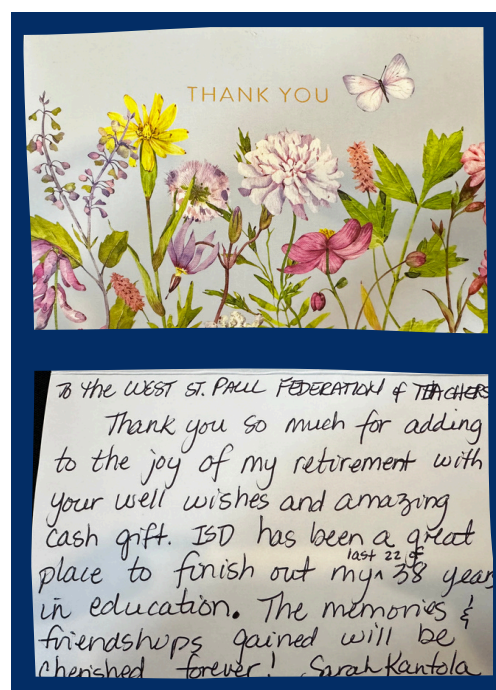 THANK YOU
To the WEST ST. PAUL FEDERATION of TEACHERS
Thank you so much for adding
to the joy of my retirement with
your well wishes and amazing
cash gift. ISD has been a great
last 22 of
place to finish out my ^ 38 years
in education. The memories &
friendships gained will be
cherished forever! Sarah Kantola